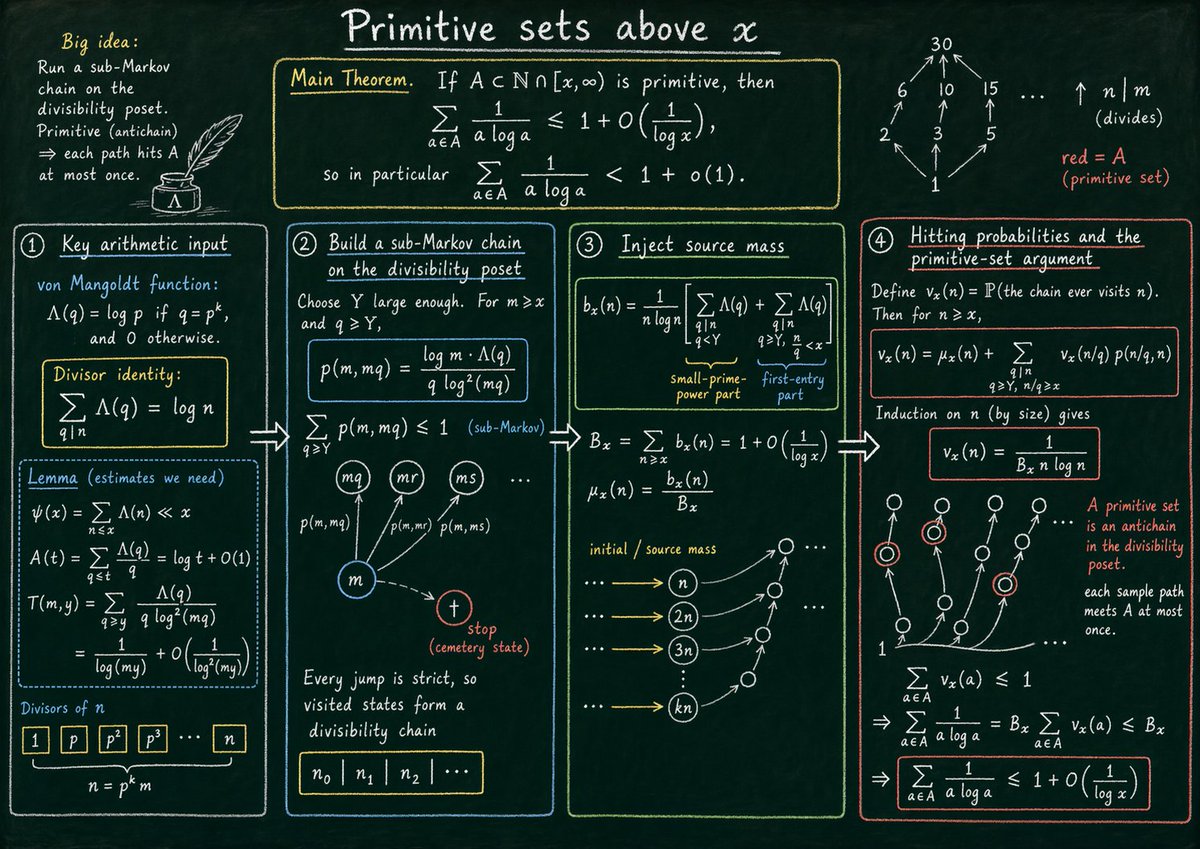 Primitive sets above x
Big idea:
Run a sub-Markov
chain on the
divisibility poset.
Primitive (antichain)
⇒ each path hits A
at most once.
Λ
Main Theorem. If A ⊂ ℕ ∩ [x, ∞) is primitive, then
∑_{a∈A} 1/(a log a) ≤ 1 + O(1/log x),
so in particular ∑_{a∈A} 1/(a log a) < 1 + o(1).
30
6 10 15 ... ↑ n | m
(divides)
2 3 5
1
red = A
(primitive set)
① Key arithmetic input
von Mangoldt function:
Λ(q) = log p if q = p^k,
and 0 otherwise.
Divisor identity:
∑_{q|n} Λ(q) = log n
Lemma (estimates we need)
ψ(x) = ∑_{n≤x} Λ(n) ≪ x
A(t) = ∑_{q≤t} Λ(q)/q = log t + O(1)
T(m,y) = ∑_{q≥y} Λ(q)/(q log²(mq))
= 1/log(my) + O(1/log²(my))
Divisors of n
1 p p² p³ ... n
n = p^k m
② Build a sub-Markov chain
on the divisibility poset
Choose Y large enough. For m ≥ x
and q ≥ Y,
p(m, mq) = (log m · Λ(q))/(q log²(mq))
∑_{q≥Y} p(m, mq) ≤ 1 (sub-Markov)
mq mr ms ...
p(m, mq) p(m, mr) p(m, ms)
m
†
stop
(cemetery state)
Every jump is strict, so
visited states form a
divisibility chain
n₀ | n₁ | n₂ | ⋯
③ Inject source mass
b_x(n) = 1/(n log n) [∑_{q|n, q<Y} Λ(q) + ∑_{q|n, q≥Y, n/q<x} Λ(q)]
small-prime-
power part
first-entry
part
B_x = ∑_{n≥x} b_x(n) = 1 + O(1/log x)
μ_x(n) = b_x(n)/B_x
initial / source mass
... n ...
... 2n ...
... 3n
⋮
... kn
④ Hitting probabilities and the
primitive-set argument
Define v_x(n) = ℙ(the chain ever visits n).
Then for n ≥ x,
v_x(n) = μ_x(n) + ∑_{q|n, q≥Y, n/q≥x} v_x(n/q) p(n/q, n)
Induction on n (by size) gives
v_x(n) = 1/(B_x n log n)
...
A primitive set
is an antichain
in the divisibility
poset.
each sample path
meets A at most
once.
1 ...
∑_{a∈A} v_x(a) ≤ 1
⇒ ∑_{a∈A} 1/(a log a) = B_x ∑_{a∈A} v_x(a) ≤ B_x
⇒ ∑_{a∈A} 1/(a log a) ≤ 1 + O(1/log x)